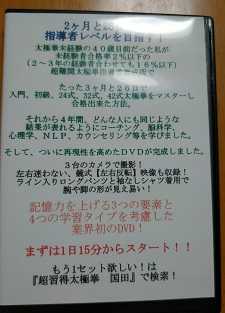 2ヶ月と
指導者レベルを目指す!
太極拳未経験の40歳目前だった私が
未経験者合格率2%以下の
(2〜3年の経験者合わせても16%以下)
超難関太極拳
たった3ヶ月と26日で
入門、初級、24式、32式、42式太極拳をマスターし
合格出来た方法。
それから4年間、どんな人にも同じような
結果が表れるようにコーチング、脳科学、
心理学、NLP、カウンセリング等を学びました。
そして、ついに再現性を高めたDVDが完成しました。
3台のカメラで撮影!
左右迷わない、鏡式【左右反転】映像も収録!
ライン入りロングパンツと袖なしシャツ着用で
腕や脚の形が見え易い!
記憶力を上げる3つの要素と
4つの学習タイプを考慮した
業界初のDVD!
まずは1日15分からスタート!!
もう1セット欲しい!は
『超習得太極拳 国田』で検索!